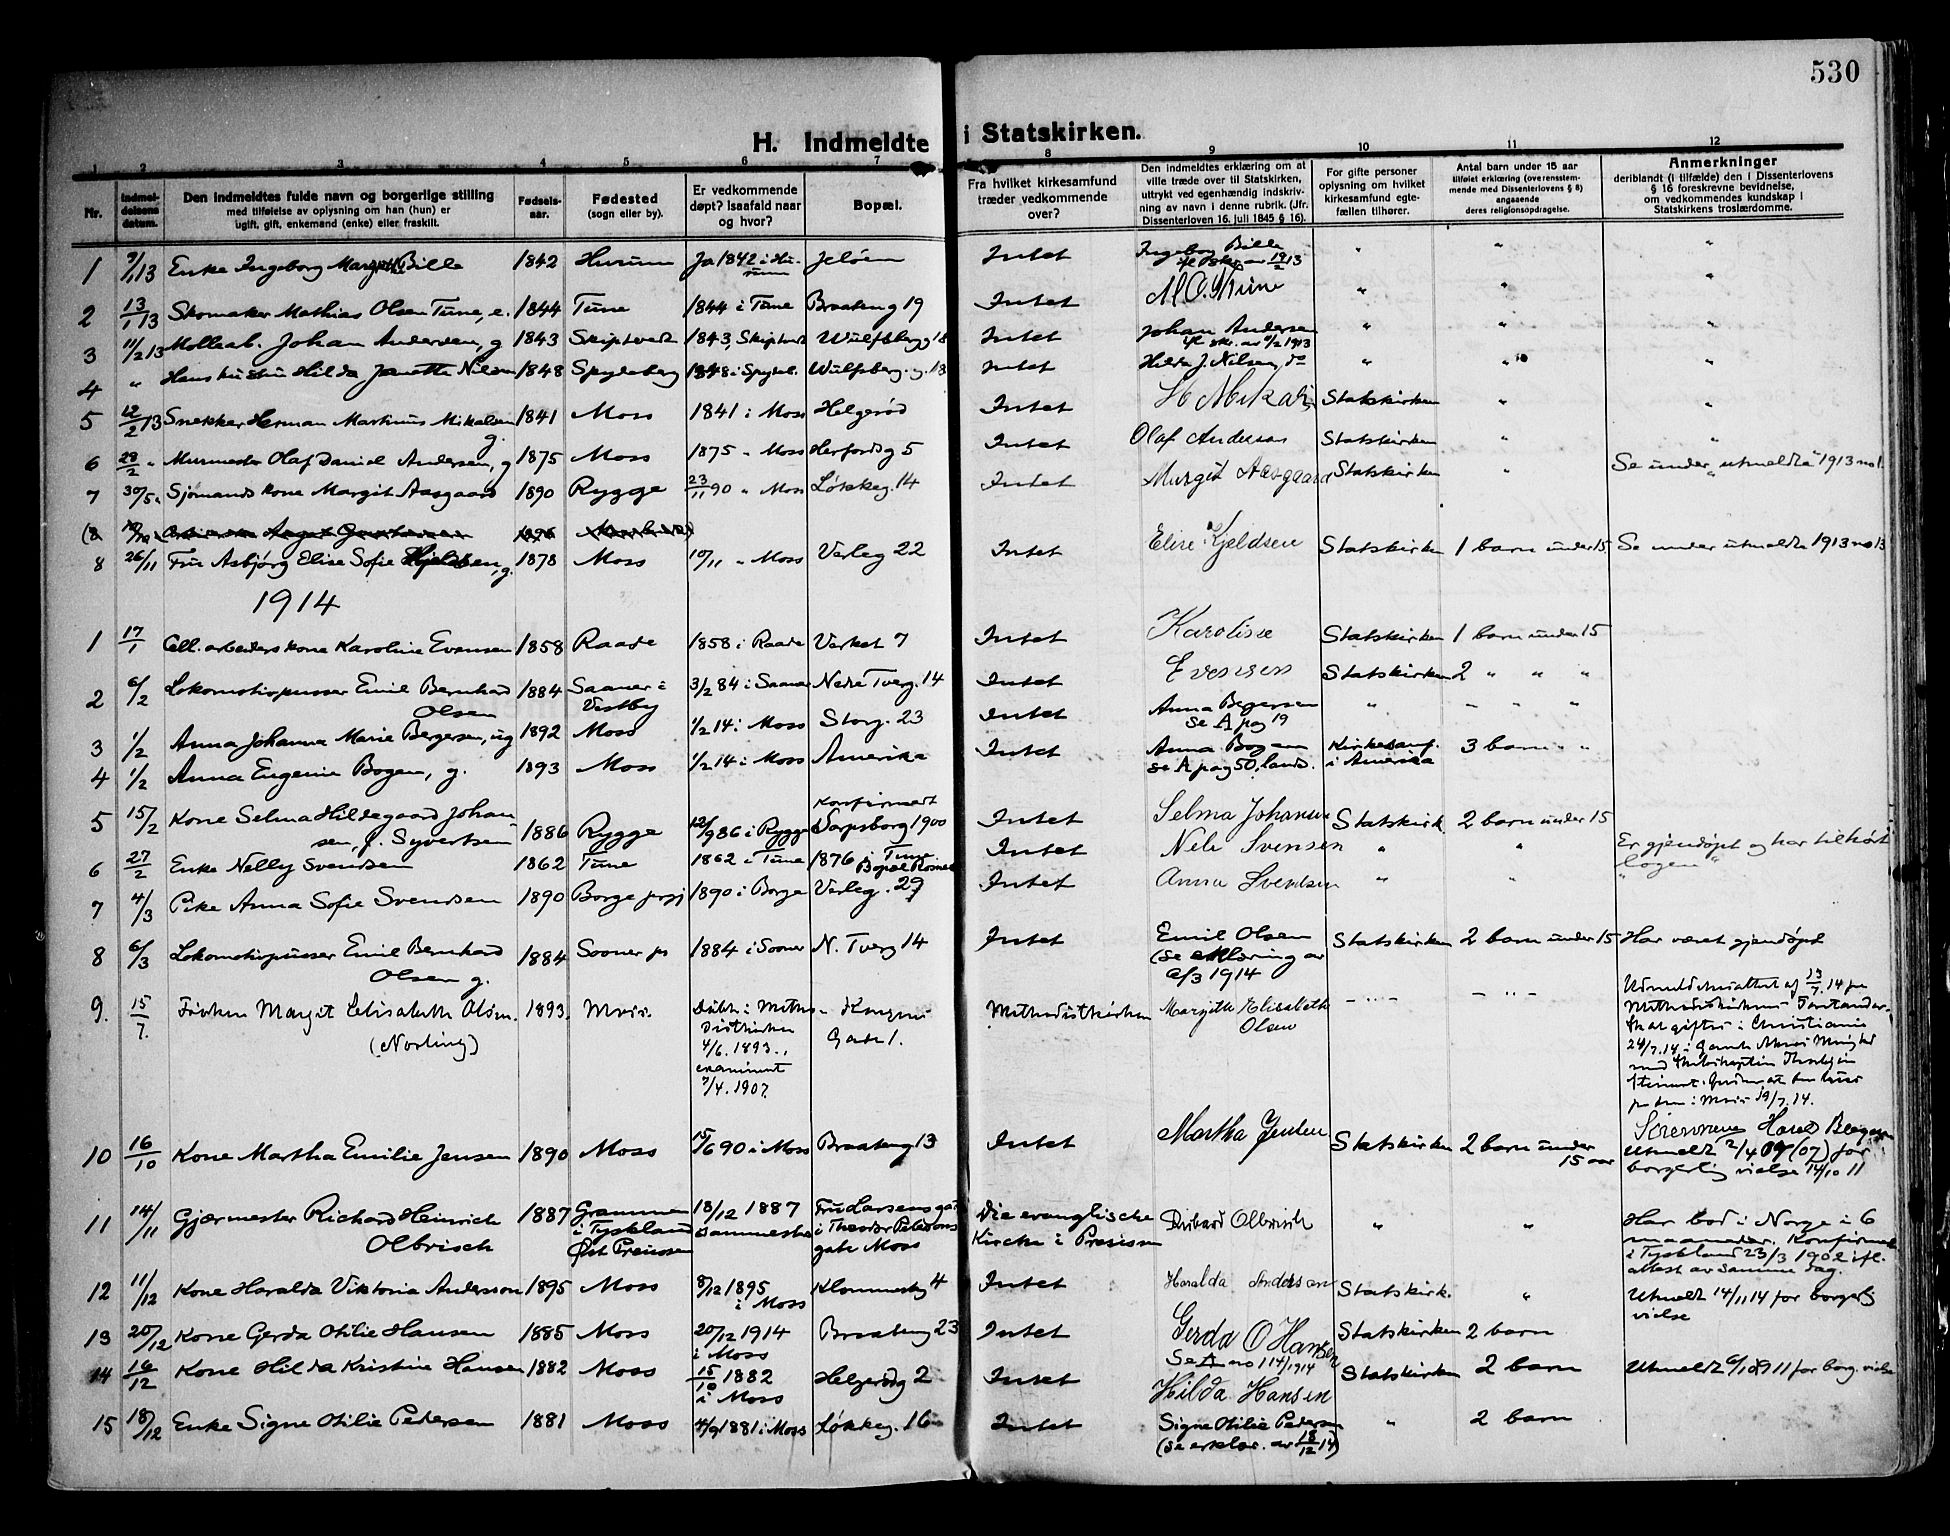 530
H. Indmeldte i Statskirken.
1 2 3 4 5 6 7 8 9 10 11 12
Nr.
Indmel-
delsens
datum.
Den indmeldtes fulde navn og borgerlige stilling
med tilføielse av oplysning om han (hun) er
ugift, gift, enkemand (enke) eller fraskilt.
Fødsels-
aar.
Fødested
(sogn eller by).
Er vedkommende
døpt? Isaafald naar
og hvor?
Bopæl.
Fra hvilket kirkesamfund
træder vedkommende
over?
Den indmeldtes erklæring om at
ville træde over til Statskirken,
uttrykt ved egenhændig indskriv-
ning av navn i denne rubrik. (Jfr.
Dissenterloven 16. juli 1845 § 16).
For gifte personer
oplysning om hvilket
kirkesamfund egte-
fællen tilhører.
Antal barn under 15 aar
tilføiet erklæring (overensstem-
mende med Dissenterlovens § 8)
angaaende
deres religionsopdragelse.
Anmerkninger
deriblandt (i tilfælde) den i Dissenterlovens
§ 16 foreskrevne bevidnelse,
om vedkommendes kundskap i
Statskirkens troslærdomme.
1 Enke Ingeborg Margrethe Bille 1842 Hurum Ja 1842 i Hu- Jeløen Intet Ingeborg Bille " " "
rum
2 13/1 13 Skomaker Mathias Olsen Tune, e. 1844 Tune 1844 i Tune Braateng 19 Intet M O. Thune " " "
3 11/2 13 Møllearb. Johan Andersen, g 1843 Skiptvedt 1843, Skiptvedt Wulfsbergg 18 Intet Johan Andersen " " "
4 " Hans hustru Hilda Janette Nilsen 1848 Spydeberg 1848 i Spydeb. Wulfsberg. g. 18 Intet Hilda J. Nilsen, do " " "
5 12/2 13 Snekker Herman Martinius Mikalsen 1841 Moss 1841 i Moss Helgerød Intet Statskirken " "
g
6 28/2 " Murmester Olaf Daniel Andersen, g 1875 Moss 1875 " Moss Herfordsg 5 Intet Olaf Andersen Statskirken " "
7 30/5 " Sjømands kone Margit Aasgaard 1890 Rygge 23/11 90 " Moss Løkkeg. 14 Intet Margit Aasgaard Statskirken " Se under "utmeldte" 1913 no 1.
8 26/11 Fru Asbjørg Elise Sofie Kjeldsen, g. 1878 Moss 10/11 " Moss Varleg 22 Intet Elise Kjeldsen Statskirken 1 barn under 15 Se under utmeldte 1913 no 13
1914
1 17/1 Cell. arbeiders kone Karoline Evensen 1858 Raade 1858 i Raade Verket 7 Intet Karoline Statskirken 1 barn under 15
Evensen
2 6/2 Lokomotivpusser Emil Bernhard 1884 Saaner i 3/2 84 i Saaner Nedre Tverg. 14 Intet Statskirken 2 " " "
Olsen Vestby
3 1/2 Anna Johanna Marie Bergersen, ug 1892 Moss 1/2 14 i Moss Storg. 23 Intet Anna Bergersen " - " "
se A pag 19
4 1/2 Anna Eugenie Bogen, g. 1893 Moss 1/2 14 i Moss Amerika Intet Anna Bogen Kirkesamf. 3 barn " "
se A pag 50, lands. i Amerika
5 15/2 Kone Selma Hildegaard Johan 1886 Rygge 12/9 86 i Rygge Konfirmert Sarpsborg 1900 Intet Selma Johansen Statskirk. 2 barn under 15
sen, f. Syvertsen
6 27/2 Enke Nelly Svendsen 1862 Tune 1862 i Tune 1876 i Tune Intet Neli Svensen " " Er gjendøpt og har tilhørt
logen
7 4/3 Pike Anna Sofie Svendsen 1890 Borge prgj 1890 i Borge Varleg. 29 Intet Anna Svendsen " " "
8 6/3 Lokomotivpusser Emil Bernhard 1884 Sooner ps 1884 i Sooner N. Tverg 14 Intet Emil Olsen Statskirken 2 barn under 15 Har været gjendøpt
Olsen g. (se erklæring av
6/3 1914
9. 15/7. Frøken Margit Elisabeth Olsen. 1893. Moss. Døbt i Metho- Kongens Methodistkirken Margith Elisabeth Udmeldelsesattest af 13/7. 14 fra
(Norling) distkirken Gade 1. Olsen Methodistkirkens Forstander.
4/6. 1893., Skal giftes i Christiania
examinert 24/7. 14. i Gamle
7/4. 1907.
19/7. 14.
10 16/10 Kone Martha Emilie Jensen 1890 Moss 15/6 90 i Moss Braateng 13 Intet Martha Jensen Statskirken 2 barn under
15 aar Utmeldt 2/4 09 (07) for
borgerlig vielse 14/10 11
11 14/11 Gjærmester Richard Heinrich 1887 Grammen 18/12 1887 Fru Larsens gaard Die evanglische Richard Olbrisch " " Har bod i Norge i 6
Olbrisch i Tyskland sammested i Theodor Petersons Kirche i Preissen maaneder. Konfirmert
Øst Preussen gate Moss i Tyskland 23/3 1902 ifl.
attest av samme dag.
12 11/12 Kone Haralda Viktoria Andersson 1895 Moss 8/12 1895 Klommesteg 4 Intet Haralda Anderson Statskirk. " Utmeldt 14/11 14 for borgerlig
i Moss vielse
13 20/12 Kone Gerda Otilie Hansen 1885 Moss 20/12 1914 Braateng 23 Intet Gerda O Hansen Statskirken 2 barn
i Moss Se A no 114/1914
14 16/12 Kone Hilda Kristine Hansen 1882 Moss 15/10 1882 Helgerødg 2 Intet Hilda Hansen Statskirken 2 barn Utmeldt 1911 for borg. vielse
i Moss
15 18/12 Enke Signe Otilie Pedersen 1881 Moss 4/9 1881 i Moss Løkkeg. 16 Intet Signe Otilie Pedersen " 2 barn
(se erklær. av 18/12 14)